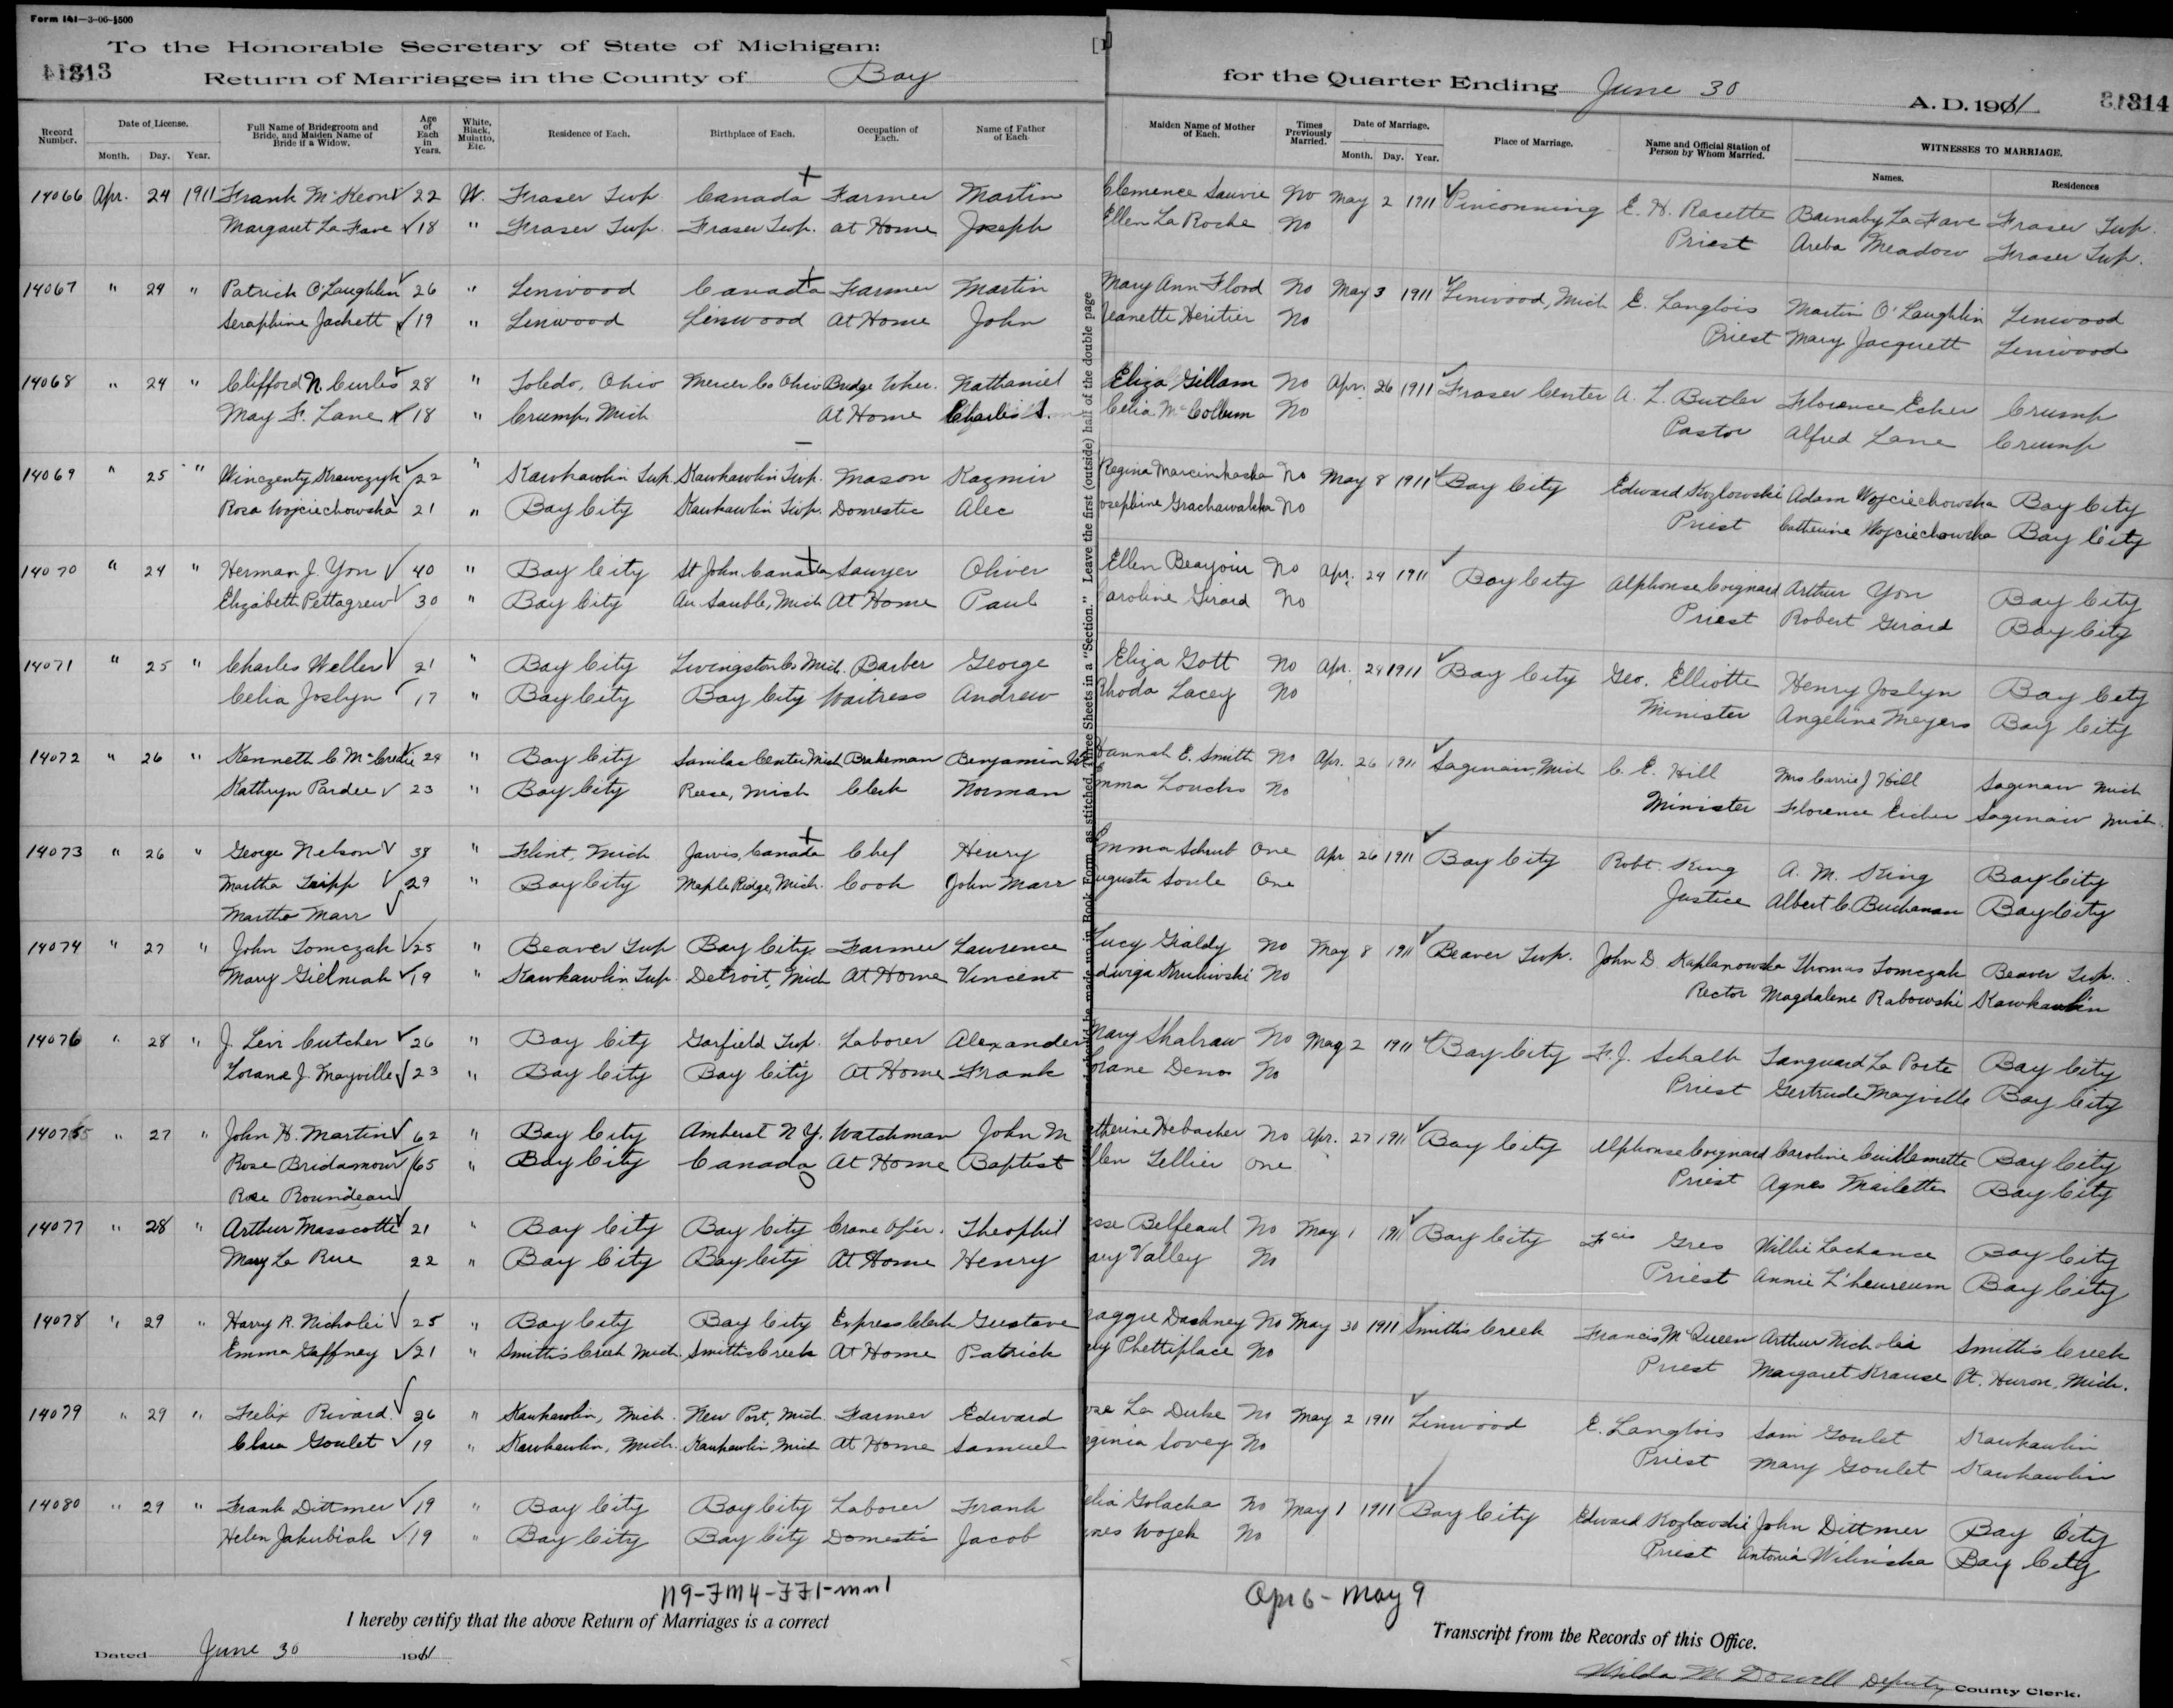 Form 141—3-06-1500
To the Honorable Secretary of State of Michigan:
Return of Marriages in the County of Bay
for the Quarter Ending June 30 A. D. 1911
31314
Record Number. Date of License. Month. Day. Year. Full Name of Bridegroom and Bride, and Maiden Name of Bride if a Widow. Age of Each in Years. White, Black, Mulatto, Etc. Residence of Each. Birthplace of Each. Occupation of Each. Name of Father of Each Maiden Name of Mother of Each. Times Previously Married. Date of Marriage. Month. Day. Year. Place of Marriage. Name and Official Station of Person by Whom Married. WITNESSES TO MARRIAGE. Names. Residences
14066 Apr. 24 1911 Frank McKeon 22 W. Fraser Twp Canada Farmer Martin Clemence Sauvie No May 2 1911 Pinconning E. H. Racette Barnaby La Fave Fraser Twp.
Margaret La Fave 18 " Fraser Twp. Fraser Twp. At Home Joseph Ellen La Roche No Priest Areba Meadow Fraser Twp.
14067 " 24 " Patrick O'Laughlin 26 " Linwood Canada Farmer Martin Mary Ann Flood No May 3 1911 Linwood, Mich E. Langlois Martin O'Laughlin Linwood
Seraphine Jackett 19 " Linwood Linwood At Home John Jeanette Heritier No Priest Mary Jacquett Linwood
14068 " 24 " Clifford N Curlis 28 " Toledo, Ohio Mercer Co Ohio Bridge Wker. Nathaniel Eliza Gillam No Apr. 26 1911 Fraser Center A. L. Butler Florence Esher Crump
May F. Lane 18 " Crump, Mich At Home Charles S. Celia McCollum No Pastor Alfred Lane Crump
14069 " 25 " Winczenty Krawczyk 22 " Kawkawlin Twp. Kawkawlin Twp. Mason Kazmir Regina Marcinkaska No May 8 1911 Bay City Edward Kozlowski Adam Wojciechowska Bay City
Rosa Wojciechowska 21 " Bay City Kawkawlin Twp. Domestic Alec osephine Grachawalska No Priest Catherine Wojciechowska Bay City
14070 " 24 " Herman J. Yon 40 " Bay City St John Canada Sawyer Oliver Ellen Beaujour No Apr. 24 1911 Bay City Alphonse Coignard Arthur Yon Bay City
Elizabeth Pettagrew 30 " Bay City Au Sauble, Mich At Home Paul Caroline Girard No Priest Robert Girard Bay City
14071 " 25 " Charles Weller 21 " Bay City Livingston Co Mich. Barber George Eliza Gott No Apr. 24 1911 Bay City Geo. Elliotte Henry Joslyn Bay City
Celia Joslyn 17 " Bay City Bay City Waitress Andrew Rhoda Lacey No Minister Angeline Meyers Bay City
14072 " 26 " Kenneth C. McCredie 24 " Bay City Sanilac Center Mich Brakeman Benjamin Hannah E. Smith No Apr. 26 1911 Saginaw, Mich C. E. Hill Mrs Carrie J Hill Saginaw Mich
Kathryn Pardee 23 " Bay City Reese, Mich Clerk Norman Emma Loucks No Minister Florence Eicher Saginaw Mich.
14073 " 26 " George Nelson 38 " Flint, Mich Jarvis, Canada Chef Henry Emma Schrub One Apr 26 1911 Bay City Robt. King A. M. King Bay City
Martha Tripp 29 " Bay City Maple Ridge, Mich. Cook John Marr ugusta Soule One Justice Albert C. Buchanan Bay City
Martha Marr
14074 " 27 " John Tomczak 25 " Beaver Twp Bay City Farmer Lawrence Lucy Gialdy No May 8 1911 Beaver Twp. John D. Kaplanowska Thomas Tomczak Beaver Twp.
Mary Gielniak 19 " Kawkawlin Twp. Detroit, Mich At Home Vincent dwiga Krulivski No Rector Magdalene Rabowski Kawkawlin
14076 " 28 " J. Levi Cutcher 26 " Bay City Garfield Twp. Laborer Alexander Mary Shabraw No May 2 1911 Bay City F. J. Schalk Tanguard La Porte Bay City
Lorane J. Mayville 23 " Bay City Bay City At Home Frank Lorane Deno No Priest Gertrude Mayville Bay City
14075 " 27 " John H. Martin 62 " Bay City Amherst N Y. Watchman John M atherine Hebacher No Apr. 27 1911 Bay City Alphonse Coignard Caroline Cuillemette Bay City
Rose Bridamour 65 " Bay City Canada At Home Baptist llen Tellier One Priest Agnes Mailette Bay City
Rose Roundeau
14077 " 28 " Arthur Masscotte 21 " Bay City Bay City Crane Op'er. Theophil esse Belfeaul No May 1 1911 Bay City Fcis Gres Willie Lachance Bay City
Mary La Rue 22 " Bay City Bay City At Home Henry ary Valley No Priest Annie L'heureum Bay City
14078 " 29 " Harry R. Nicholei 25 " Bay City Bay City Express Clerk Gustave aggie Dashney No May 30 1911 Smiths Creek Francis McQueen Arthur Nicholei Smiths Creek
Emma Gaffney 21 " Smiths Creek Mich. Smiths Creek At Home Patrick ary Phettiplace No Priest Margaret Krause Pt. Huron, Mich.
14079 " 29 " Felix Rivard 26 " Kawkawlin, Mich. New Port, Mich. Farmer Edward ose La Duke No May 2 1911 Linwood E. Langlois Sam Goulet Kawkawlin
Clara Goulet 19 " Kawkawlin, Mich. Kawkawlin Mich At Home Samuel rginia Sovey No Priest Mary Goulet Kawkawlin
14080 " 29 " Frank Dittmer 19 " Bay City Bay City Laborer Frank elia Golacha No May 1 1911 Bay City Edward Kozlowski John Dittmer Bay City
Helen Jakubiak 19 " Bay City Bay City Domestic Jacob gnes Wojek No Priest Antonia Wilinska Bay City
half of the double page
Leave the first (outside)
Three Sheets in a "Section."
as stitched.
should be made up in Book Form,
n9-FM4-FF1-mn1
Apr 6 - May 9
I hereby certify that the above Return of Marriages is a correct
Transcript from the Records of this Office.
Dated June 30 1911
Hilda McDowell Deputy County Clerk.